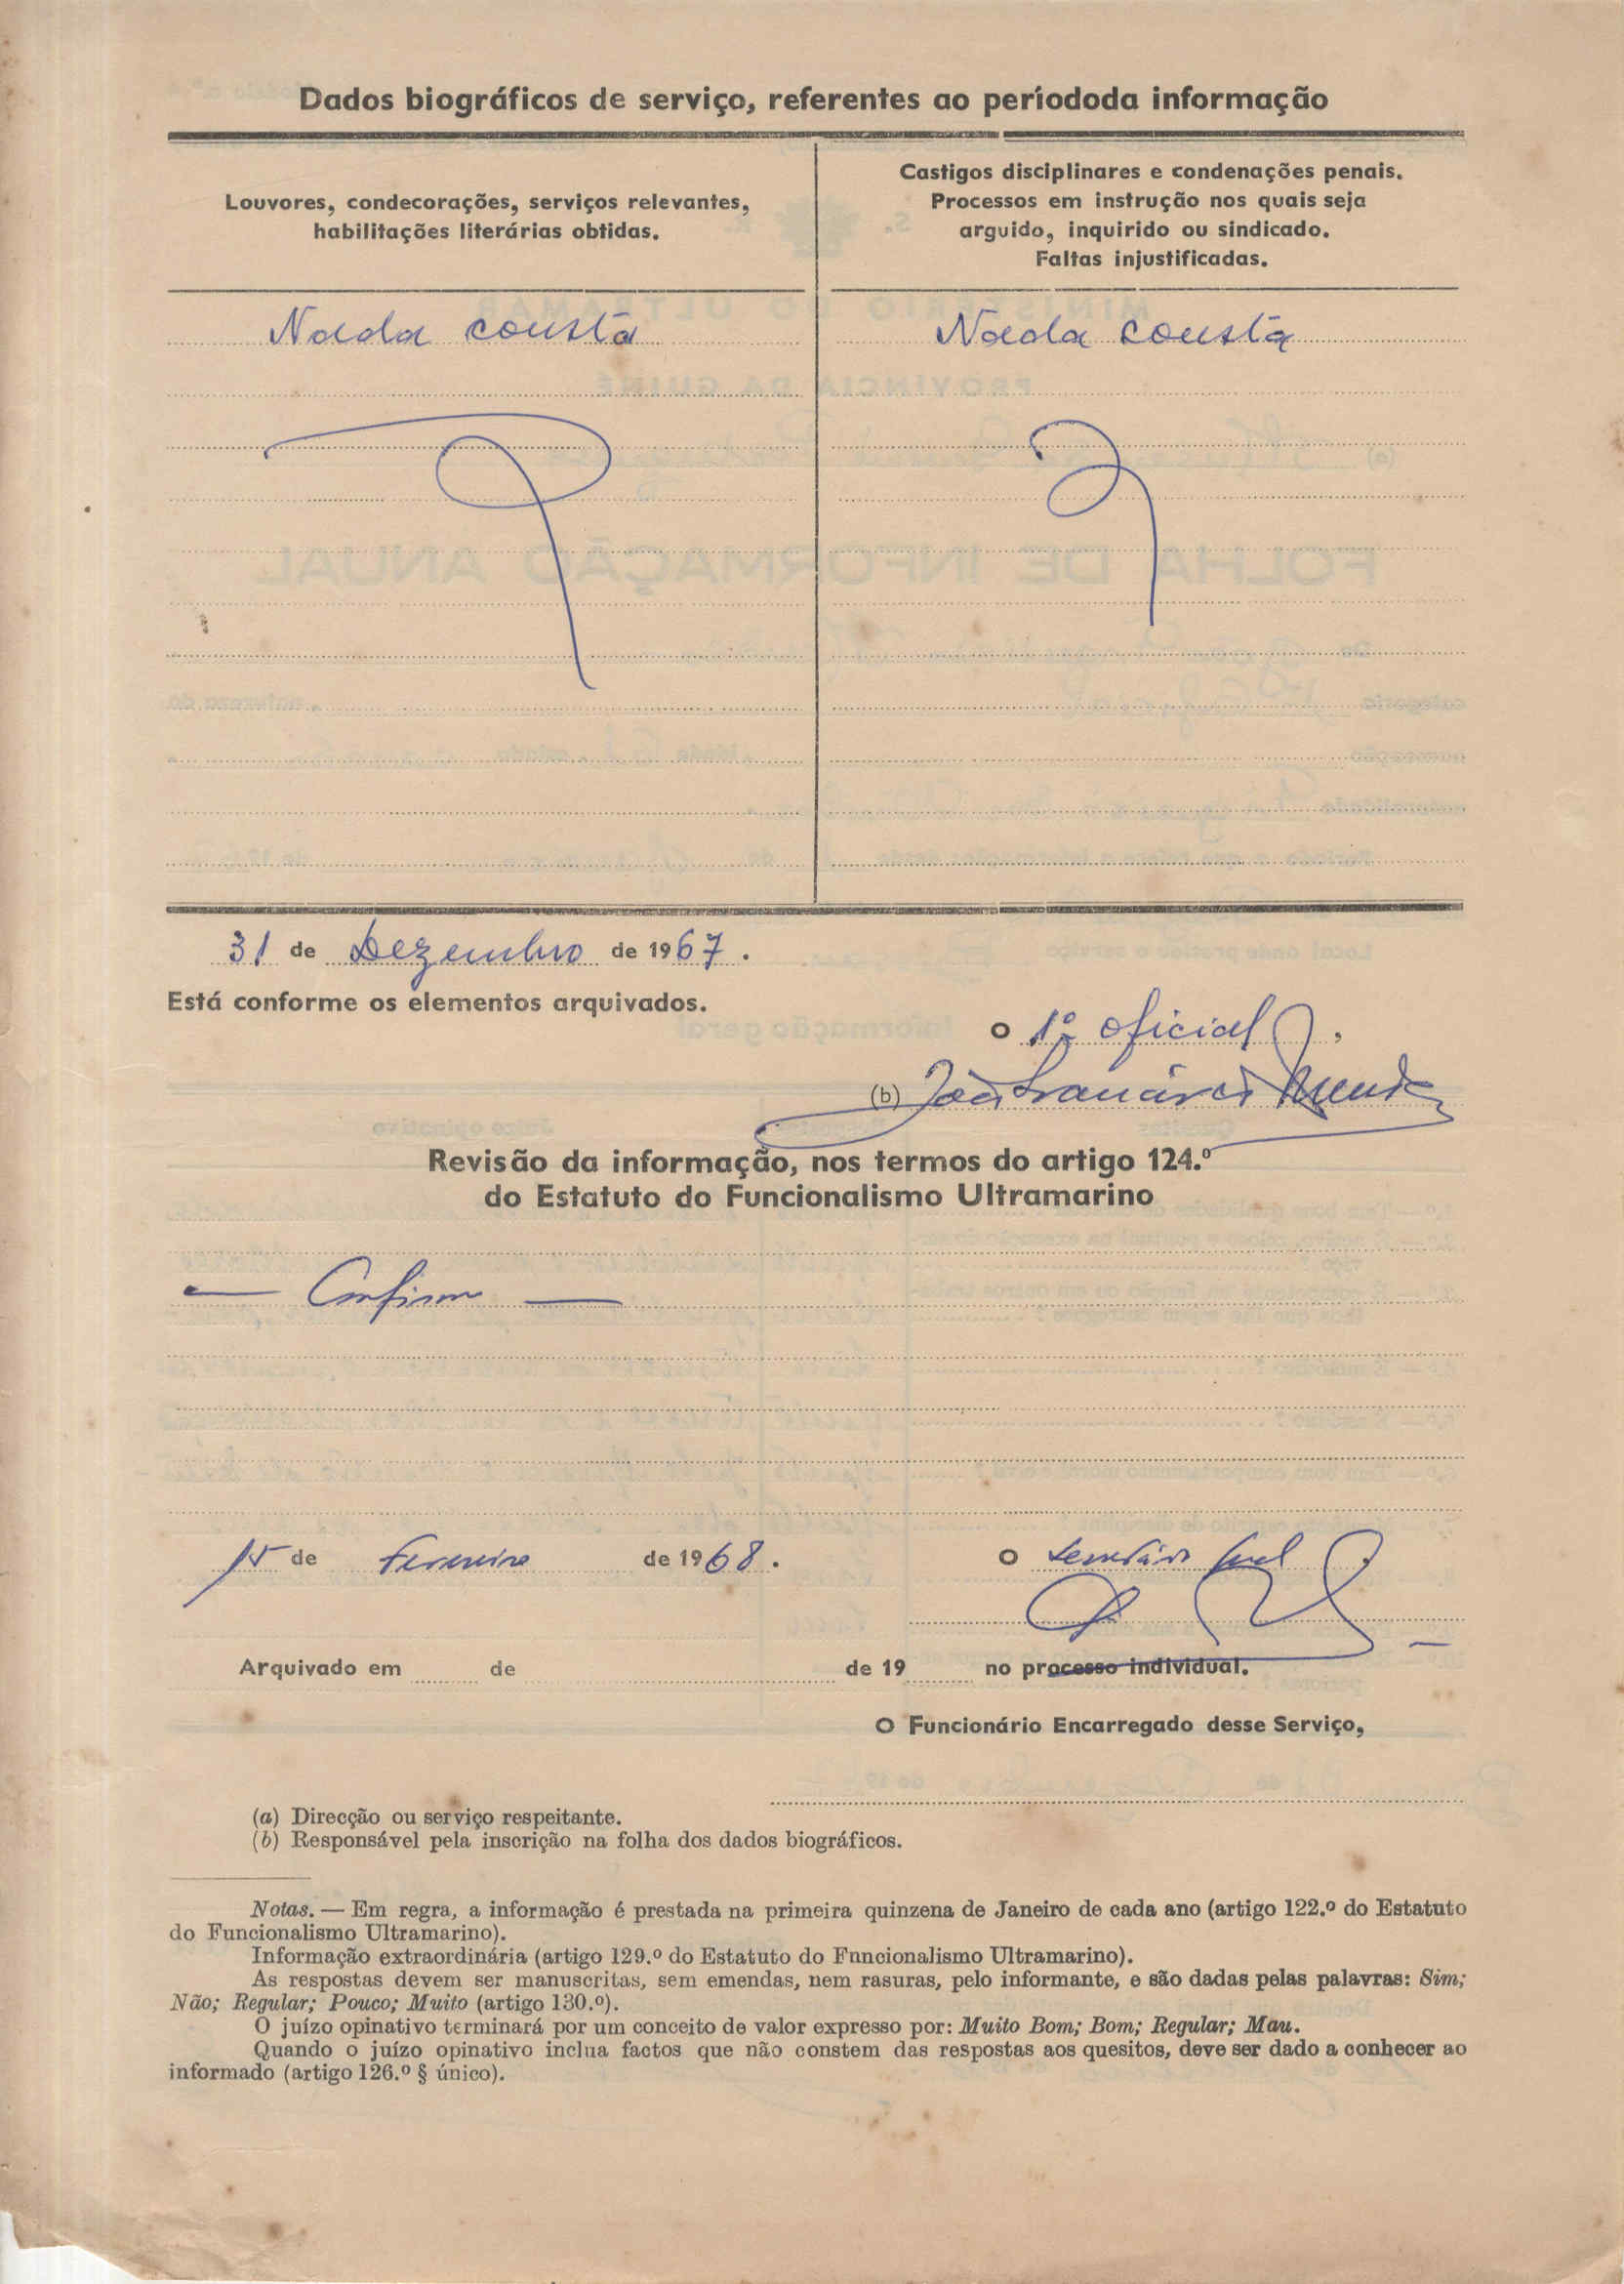 Dados biográficos de serviço, referentes ao períododa informação
Louvores, condecorações, serviços relevantes,
habilitações literárias obtidas.
Castigos disciplinares e condenações penais.
Processos em instrução nos quais seja
arguido, inquirido ou sindicado.
Faltas injustificadas.
Nada consta
Nada consta
31 de Dezembro de 1967.
Está conforme os elementos arquivados.
O 1º oficial,
(b) João Mendes
Revisão da informação, nos termos do artigo 124.º
do Estatuto do Funcionalismo Ultramarino
— Confirmo —
15 de Fevereiro de 1968.
O secretário geral
Arquivado em de de 19 no processo individual.
O Funcionário Encarregado desse Serviço,
(a) Direcção ou serviço respeitante.
(b) Responsável pela inscrição na folha dos dados biográficos.
Notas. — Em regra, a informação é prestada na primeira quinzena de Janeiro de cada ano (artigo 122.º do Estatuto
do Funcionalismo Ultramarino).
Informação extraordinária (artigo 129.º do Estatuto do Funcionalismo Ultramarino).
As respostas devem ser manuscritas, sem emendas, nem rasuras, pelo informante, e são dadas pelas palavras: Sim;
Não; Regular; Pouco; Muito (artigo 130.º).
O juízo opinativo terminará por um conceito de valor expresso por: Muito Bom; Bom; Regular; Mau.
Quando o juízo opinativo inclua factos que não constem das respostas aos quesitos, deve ser dado a conhecer ao
informado (artigo 126.º § único).